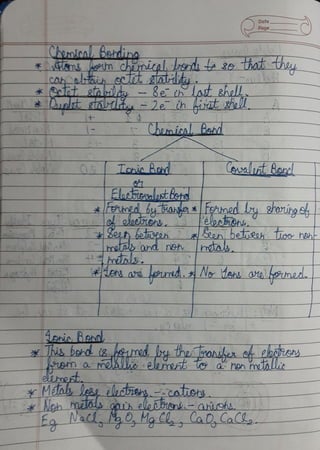 Date
Page
Chemical Bonding
* Atoms form chemical bonds to so that they
can obtain octet stability.
* Octet stability - 8e⁻ in last shell.
* Duplet stability - 2e⁻ in first shell
Chemical Bond
Ionic Bond
or
Electrovalent Bond
* Formed by transfer
of electrons.
* Seen between
metals and non
metals.
* Ions are formed.
Covalent Bond
* Formed by sharing of
electrons.
* Seen between two non-
metals.
* No Ions are formed.
Ionic Bond
* This bond is formed by the transfer of electrons
from a metallic element to a non metallic
element.
* Metals lose electrons - cations.
* Non metals gain electrons - anions.
Eg NaCl, MgO, MgCl₂, CaO, CaCl₂.